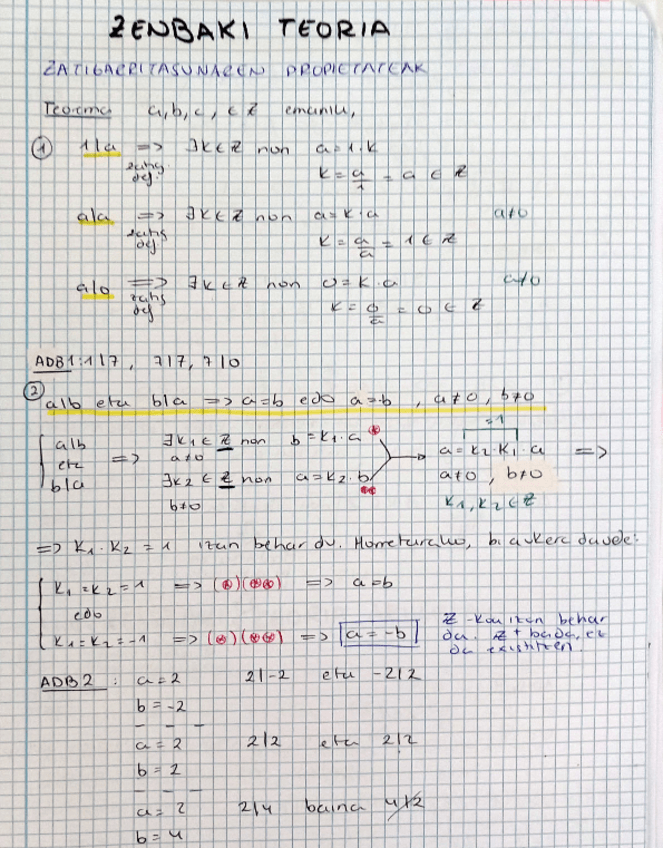 ZENBAKI TEORIA
ZATIGARRITASUNAREN PROPIETATEAK
Teorema a, b, c, ∈ Z emanik,
① 1|a => ∃k∈Z non a=1.k
zatig. def. k = a/1 = a ∈ Z
a|a => ∃k∈Z non a=k.a a≠0
zatig def k = a/a = 1 ∈ Z
a|0 => ∃k∈Z non 0=k.a a≠0
zatig def k = 0/a = 0 ∈ Z
ADB1: 1|7, 7|7, 7|0
② a|b eta b|a => a=b edo a=-b, a≠0, b≠0
=1
a|b ∃k1∈Z non b=k1.a ⊛ a=k2.k1.a =>
eta => a≠0 a≠0, b≠0
b|a ∃k2∈Z non a=k2.b ⊛⊛ k1,k2∈Z
b≠0
=> k1.k2=1 izan behar du. Horretarako, bi aukera daude:
k1=k2=1 => (⊛)(⊛⊛) => a=b
edo
k1=k2=-1 => (⊛)(⊛⊛) => a=-b Z-koa izan behar da. Z+ bada, ez da existitzen.
ADB2: a=2 2|-2 eta -2|2
b=-2
a=2 2|2 eta 2|2
b=2
a=2 2|4 baina 4∤2
b=4